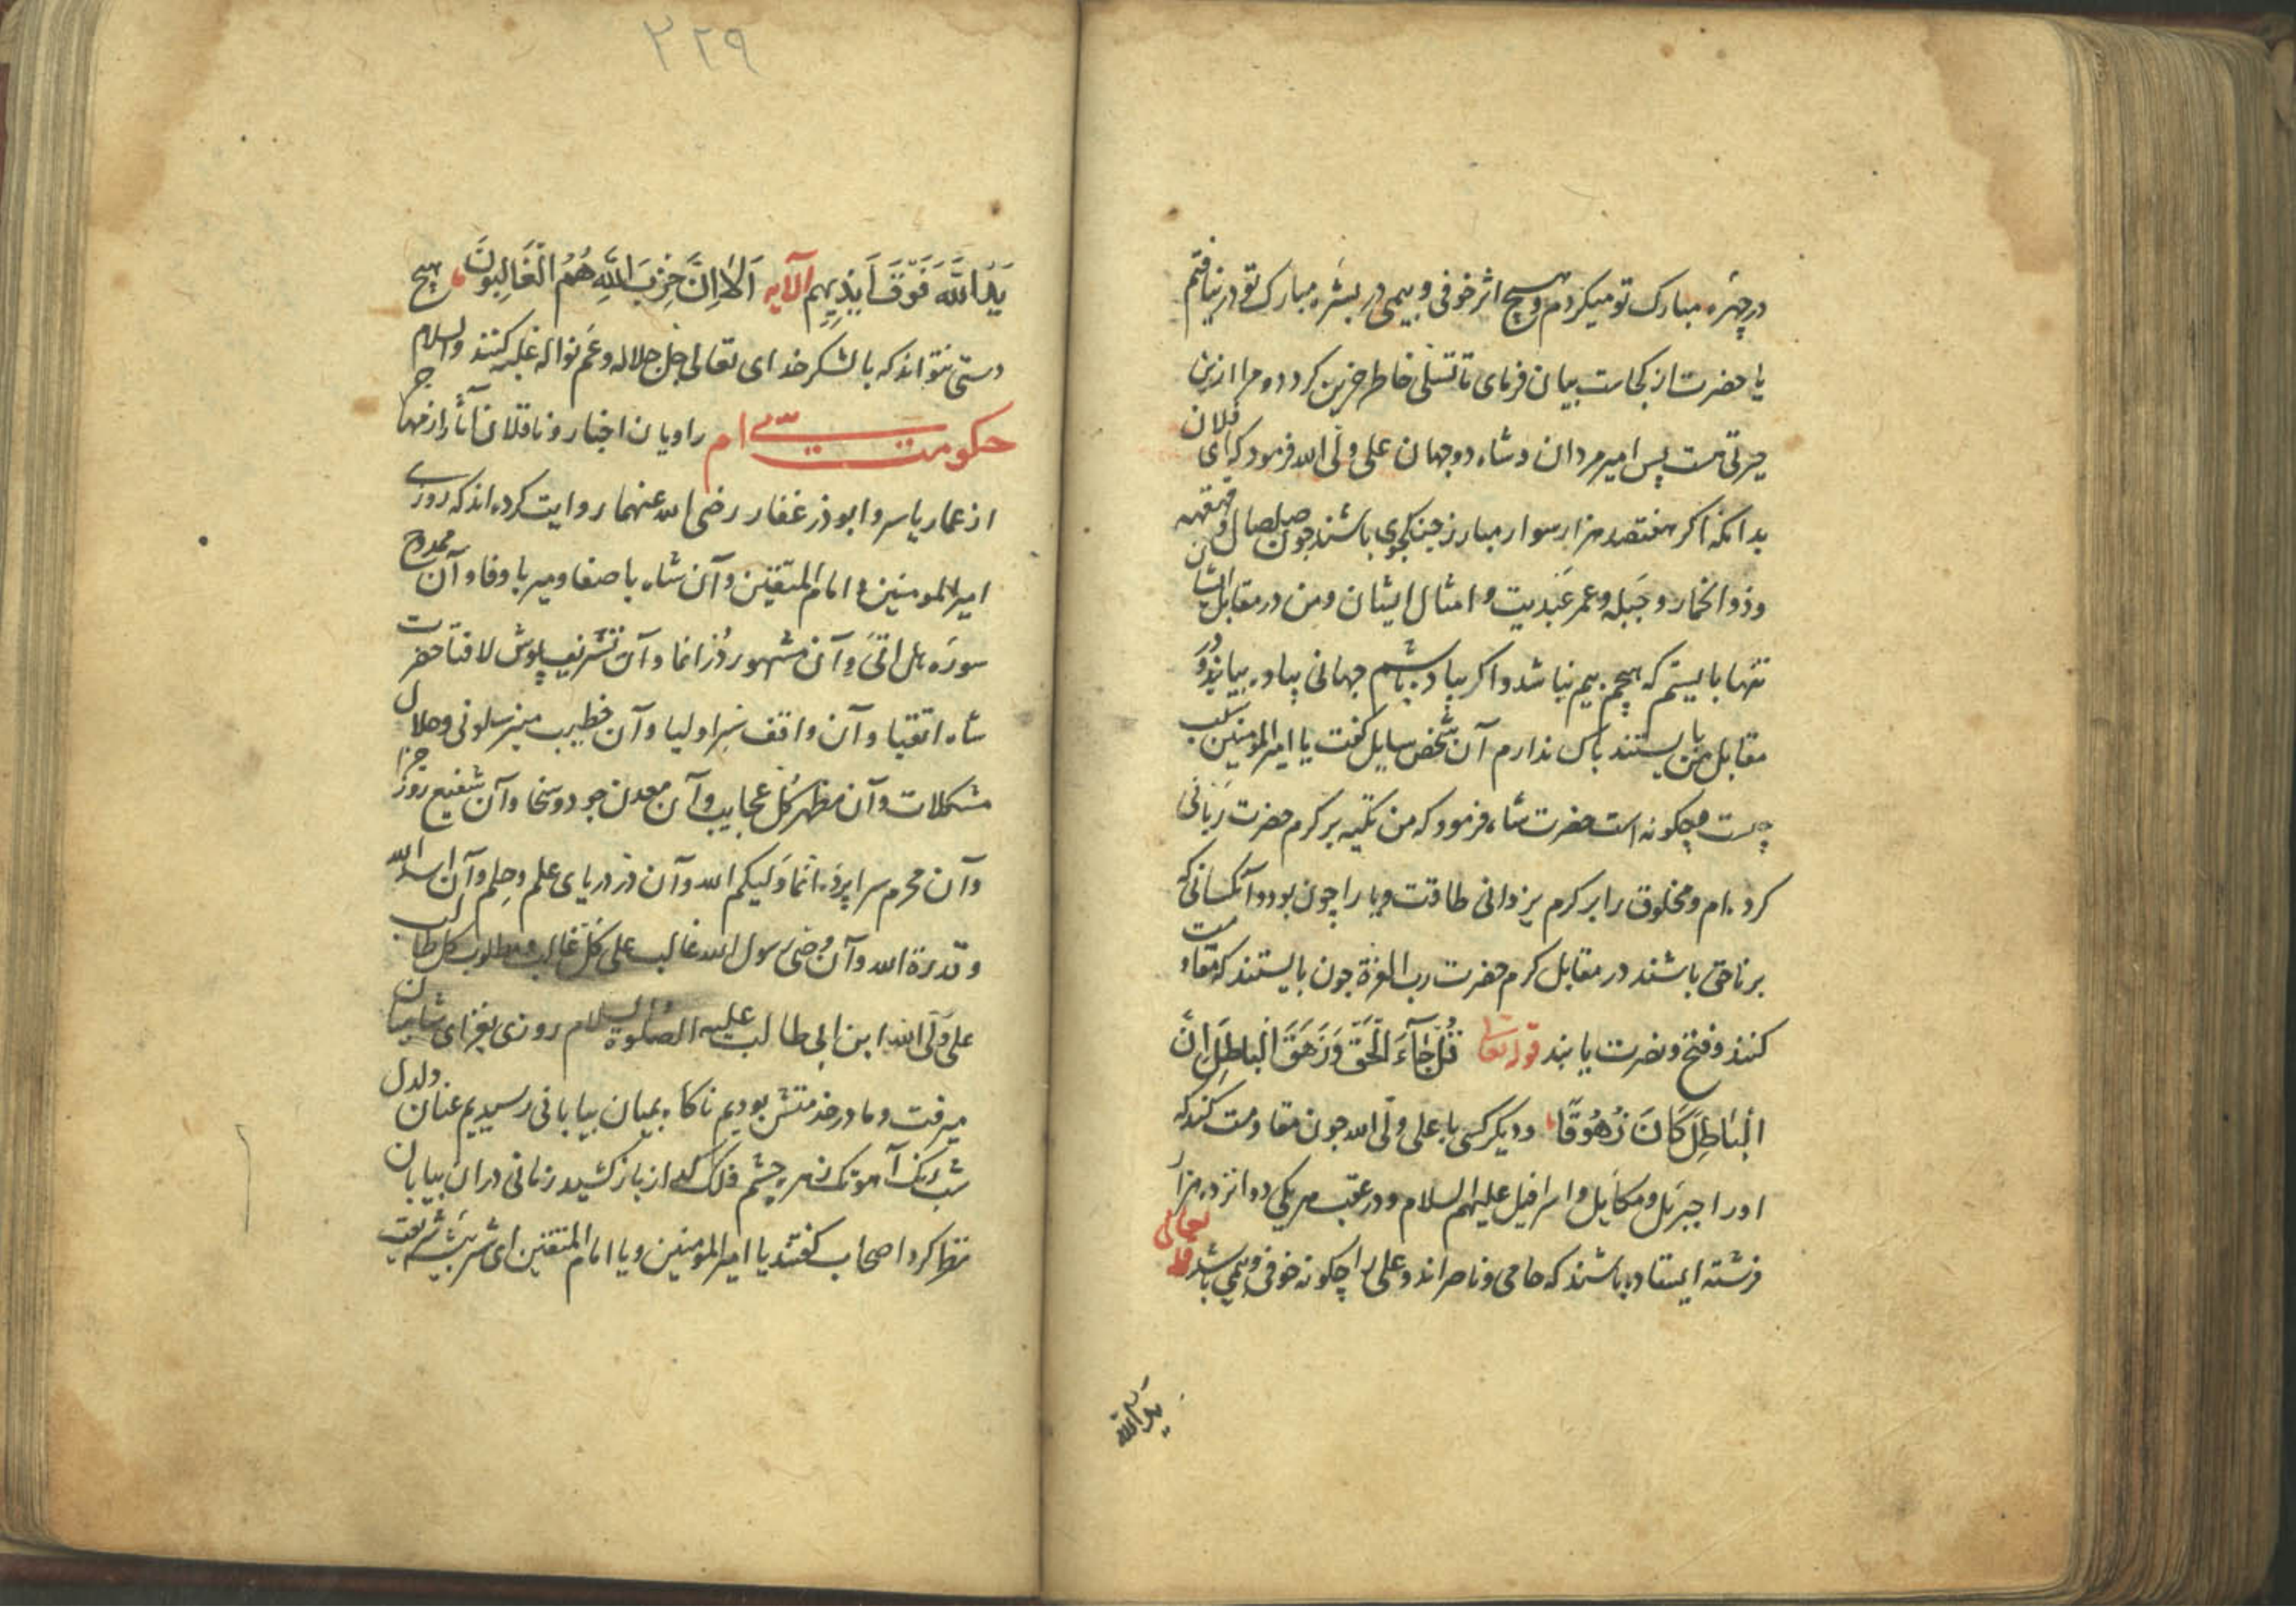 در چهره مبارک تو میکردم و هیچ اثر خوفی و بیمی در بشره مبارک تو در نیافتم
یا حضرت از کجاست بیان فرمای تا تسلی خاطر حزین کردد و مرا ازین
حیرتی هست پس امیر مردان و شاه دو جهان علی ولی الله فرمود که ای فلان
بدانکه اکر هفتصد هزار سوار مبارز جنکجوی باشند چون صلصال و قهقهه
و ذوالخمار و جبله و عمر عبدیت و امثال ایشان و من در مقابل ایشان
تنها بایستم که هیچم بیم نباشد و اکر پیاده باشم جهانی پیاده بیایند و در
مقابل من بایستند باک ندارم آن شخص سایل کفت یا امیر المومنین سبب
چیست و چکونه است حضرت شاه فرمود که من تکیه بر کرم حضرت ربانی
کرده ام و مخلوق را بر کرم یزدانی طاقت و یارا چون بود و آنکسانی که
برناحق باشند در مقابل کرم حضرت رب العزة چون بایستند که مقاومت
کنند و فتح و نصرت یابند قوله تعالی قُلْ جَآءَ الْحَقُّ وَزَهَقَ الْبَاطِلُ اِنَّ
الْبَاطِلَ كَانَ زَهُوقًا و دیکر کسی با علی ولی الله چون مقاومت کند که
او را جبرئل و مکایل و اسرافیل علیهم السلام و در عقب هریکی دوانزده هزار
فرشته ایستاده باشند که حامی و ناصراند و علی را چکونه خوفی و بیمی باشد قوله تعالی
ید الله
۲۲۹
يَدُ اللَّهِ فَوْقَ اَيْدِيهِم الآیه اَلَا اِنَّ حِزْبَ اللَّهِ هُمُ الْغَالِبُونَ هیچ
دستی نتواند که با لشکر خدای تعالی جل جلاله و عم نواله غلبه کنند والسلام
حکومت سی ام راویان اخبار و ناقلان آثار از مهاجر
از عمار یاسر و ابوذر غفار رضی الله عنهما روایت کرده اند که روزی
امیر المومنین و امام المتقین و آن شاه با صفا و میر با وفا و آن ممدوح
سوره هل اتی و آن مشهور در انما و آن تشریف پوش لافتا حضرت
شاه اتقیا و آن واقف سر اولیا و آن خطیب منبر سلونی و حلال
مشکلات و آن مظهر کل عجایب و آن معدن جود و سخا و آن شفیع روز جزا
و آن محرم سراپرده انما ولیکم الله و آن در دریای علم و حلم و آن اسد الله
و قدرة الله و آن وصی رسول الله غالب علی کل غالب مطلوب کل طالب
علی ولی الله ابن ابی طالب علیه الصلوة والسلام روزی بغزای شامیان
میرفت و ما در خدمتش بودیم ناکاه بمیان بیابانی رسیدیم عنان دلدل
شب رنک آهوتک زهره چشم فلک را باز کشید زمانی در ان بیابان
نظر کرد اصحاب کفتند یا امیر المومنین و یا امام المتقین ای شیر بیشه شریعت